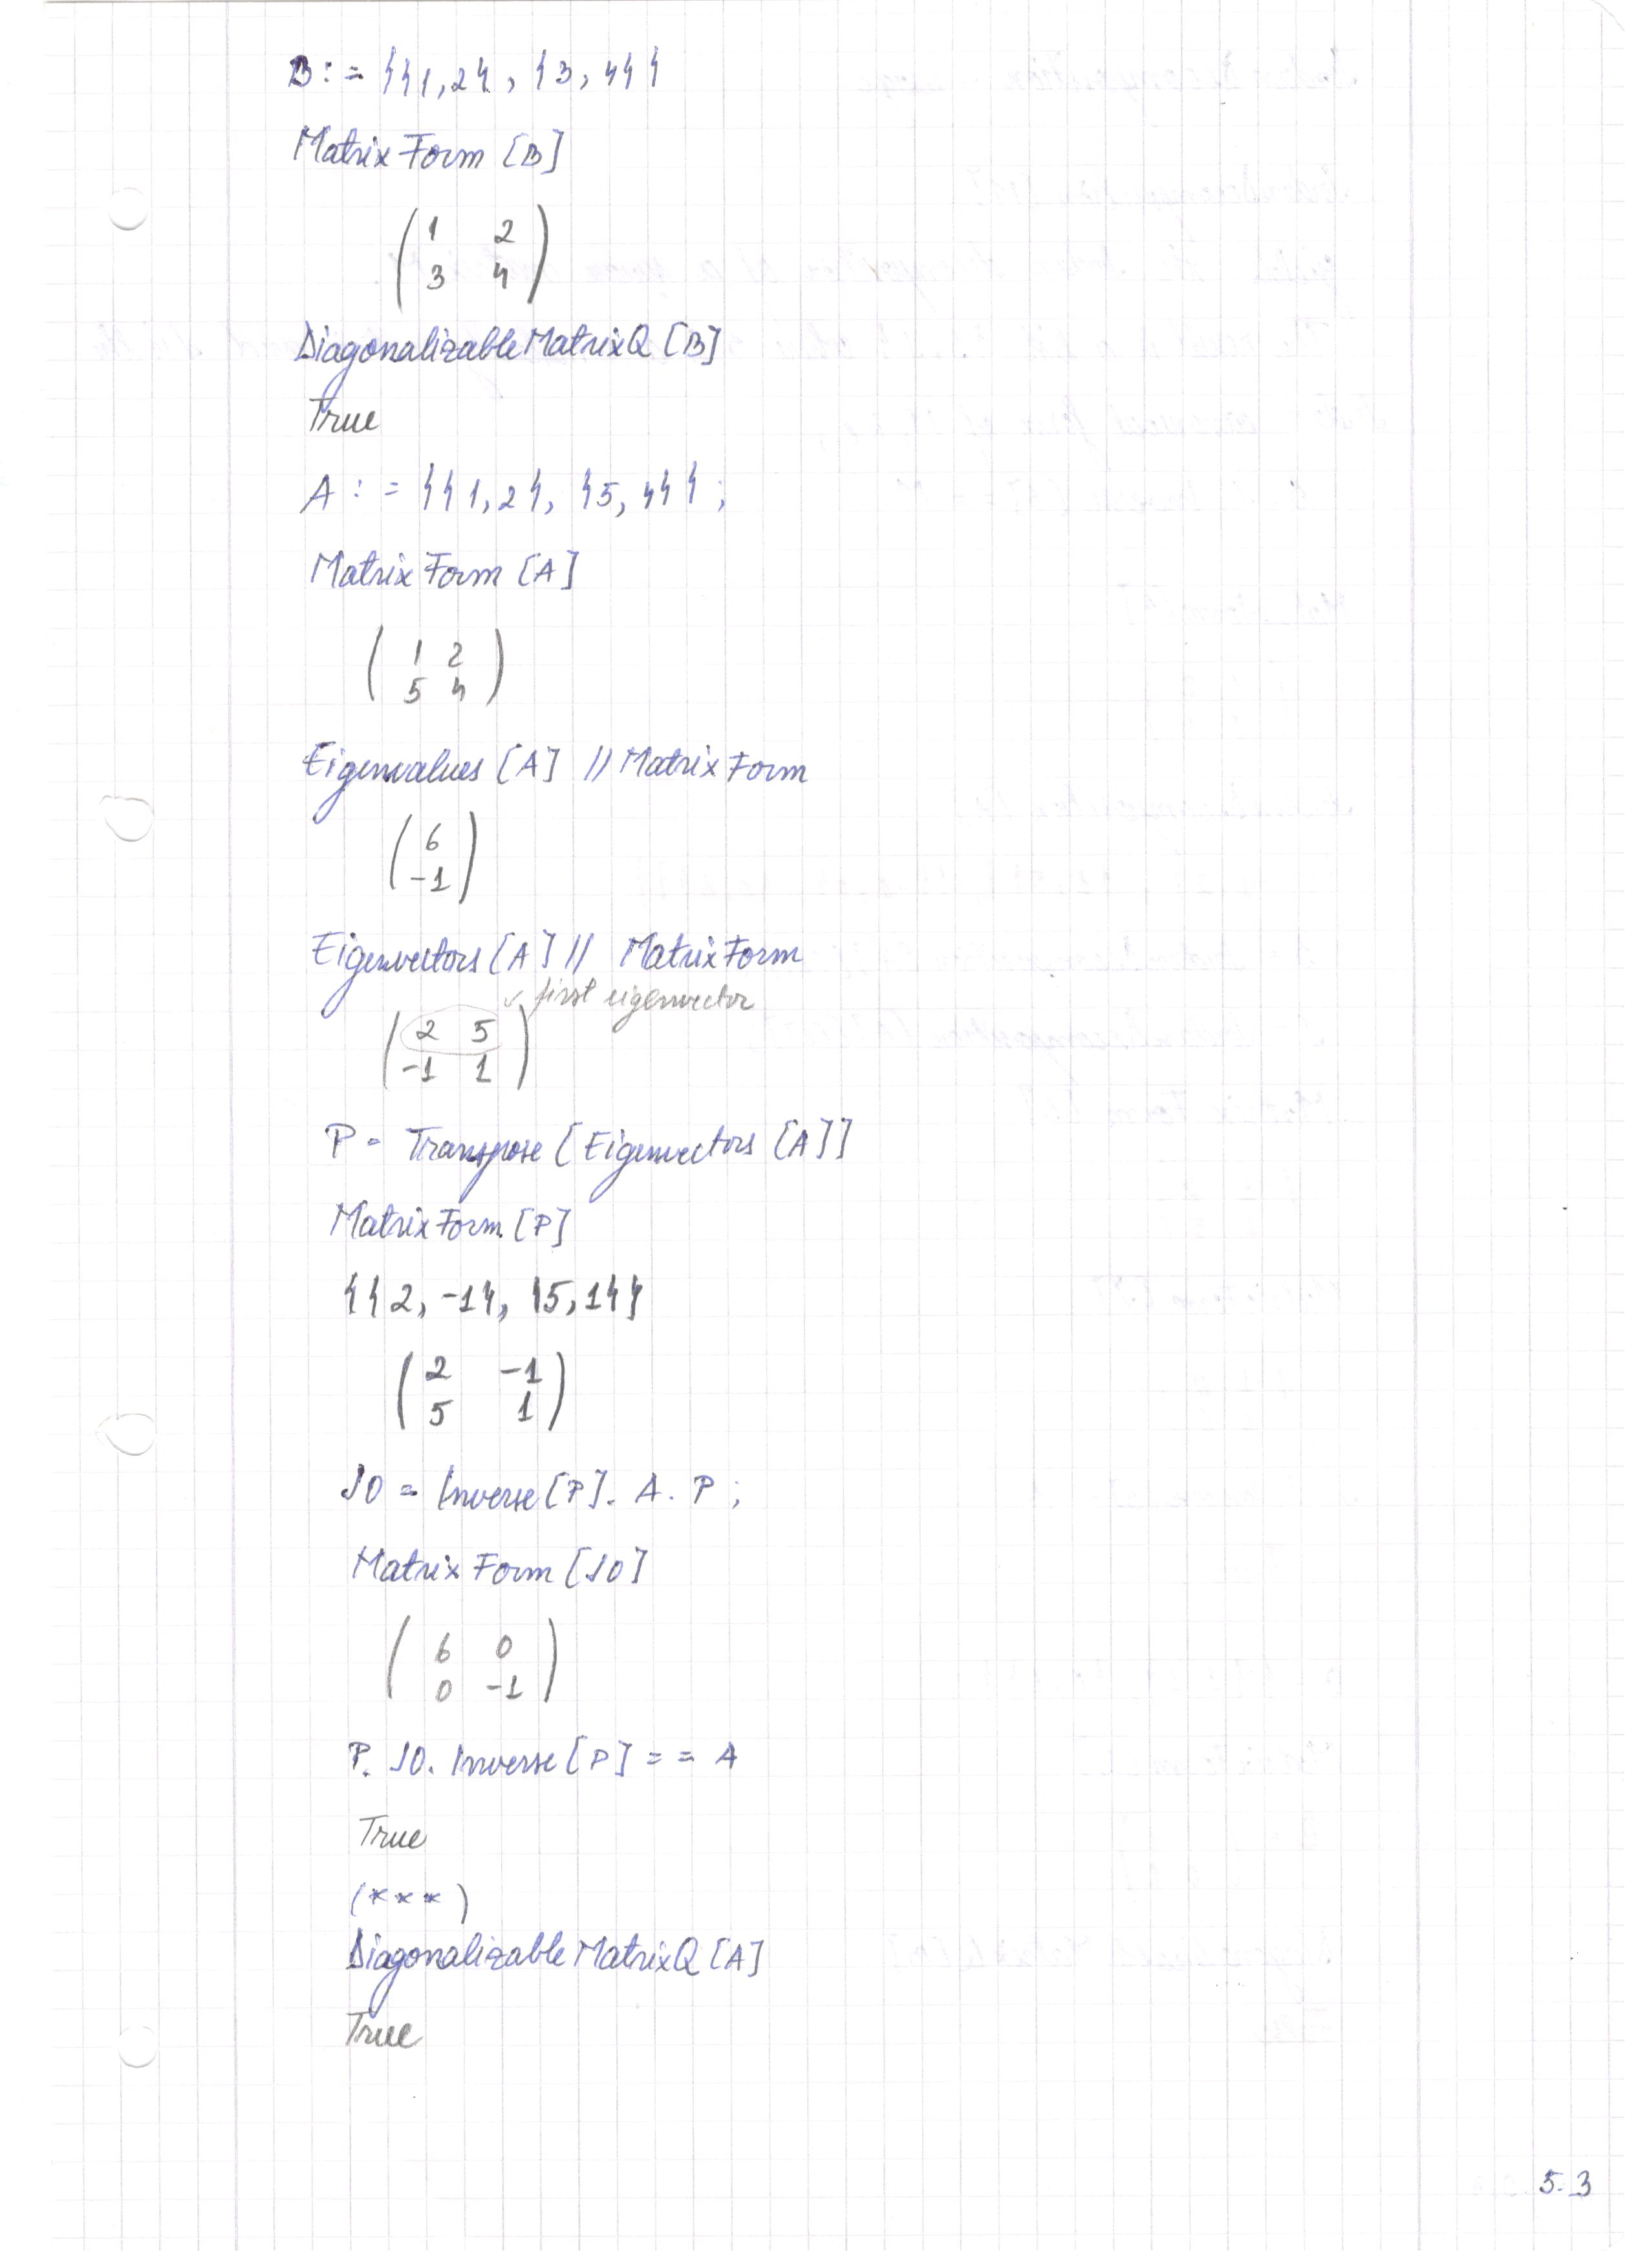 B := {{1,2}, {3,4}}
MatrixForm [B]
1 2
3 4
DiagonalizableMatrixQ [B]
True
A := {{1,2}, {5,4}};
MatrixForm [A]
1 2
5 4
Eigenvalues [A] // MatrixForm
6
-1
Eigenvectors [A] // MatrixForm
first eigenvector
2 5
-1 1
P = Transpose [Eigenvectors [A]]
MatrixForm [P]
{{2, -1}, {5, 1}}
2 -1
5 1
J0 = Inverse [P]. A. P;
MatrixForm [J0]
6 0
0 -1
P. J0. Inverse [P] == A
True
(***)
DiagonalizableMatrixQ [A]
True
5.3